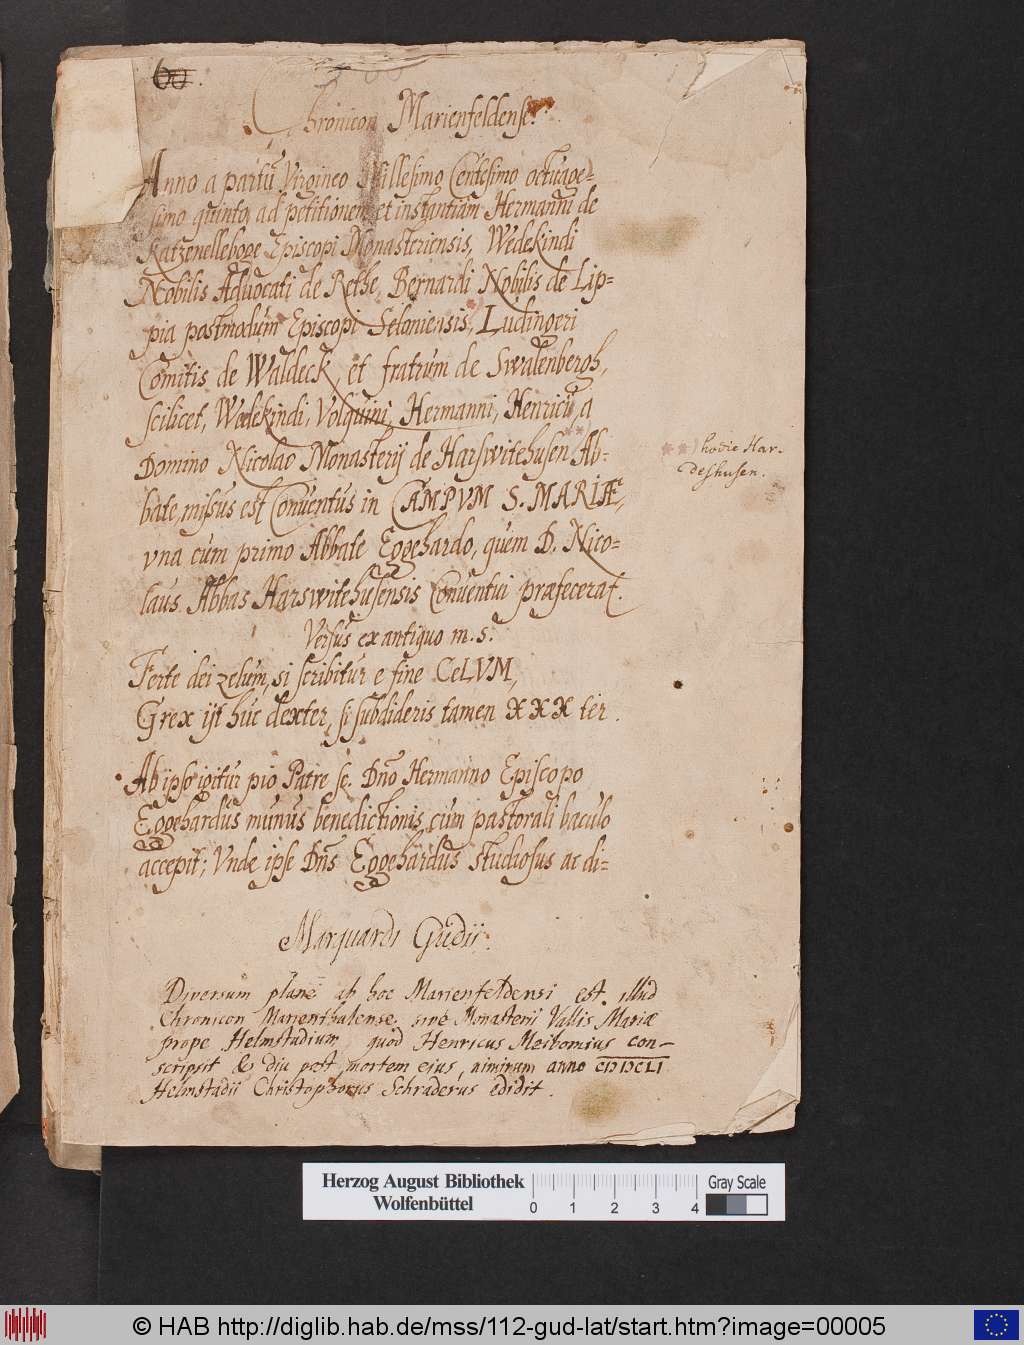 60.
Chronicon Marienfeldense.
Anno a partu Virgineo Millesimo Centesimo octuage=
simo quinto, ad petitionem et instantiam Hermanni de
Katzenelleboge Episcopi Monasteriensis, Wedekindi
Nobilis Advocati de Rethe, Bernardi Nobilis de Lip=
pia postmodum Episcopi Seloniensis, Ludingeri
Comitis de Waldeck, et fratrum de Swalenbergh,
scilicet, Wedekindi, Volquini, Hermanni, Henricu, a
Domino Nicolao Monasterij de Harswitehusen Ab=
**) hodie Har-
deshusen.
bate, missus est Conventus in CAMPVM S. MARIÆ,
vna cum primo Abbate Eggehardo, quem D. Nico=
laus Abbas Harswitehusensis Conventui præfecerat.
Versus ex antiquo m.s.
Ferte dei zelum, si scribitur e fine CeLVM,
Grex ijt huc dexter, si subdideris tamen XXX ter.
Ab ipso igitur pio Patre sc. Dno Hermanno Episcopo
Eggehardus munus benedictionis cum pastorali baculo
accepit; Vnde ipse Dns Eggehardus studiosus ac di=
Marquardi Gudii.
Diversum plane ab hoc Marienfeldensi est illud
Chronicon Marienthalense, sive Monasterii Vallis Mariæ
prope Helmstadium, quod Henricus Meibomius con-
scripsit & diu post mortem ejus, nimirum anno
Helmstadii Christophorus Schraderus edidit.
Herzog August Bibliothek
Wolfenbüttel
0 1 2 3 4
Gray Scale
© HAB http://diglib.hab.de/mss/112-gud-lat/start.htm?image=00005